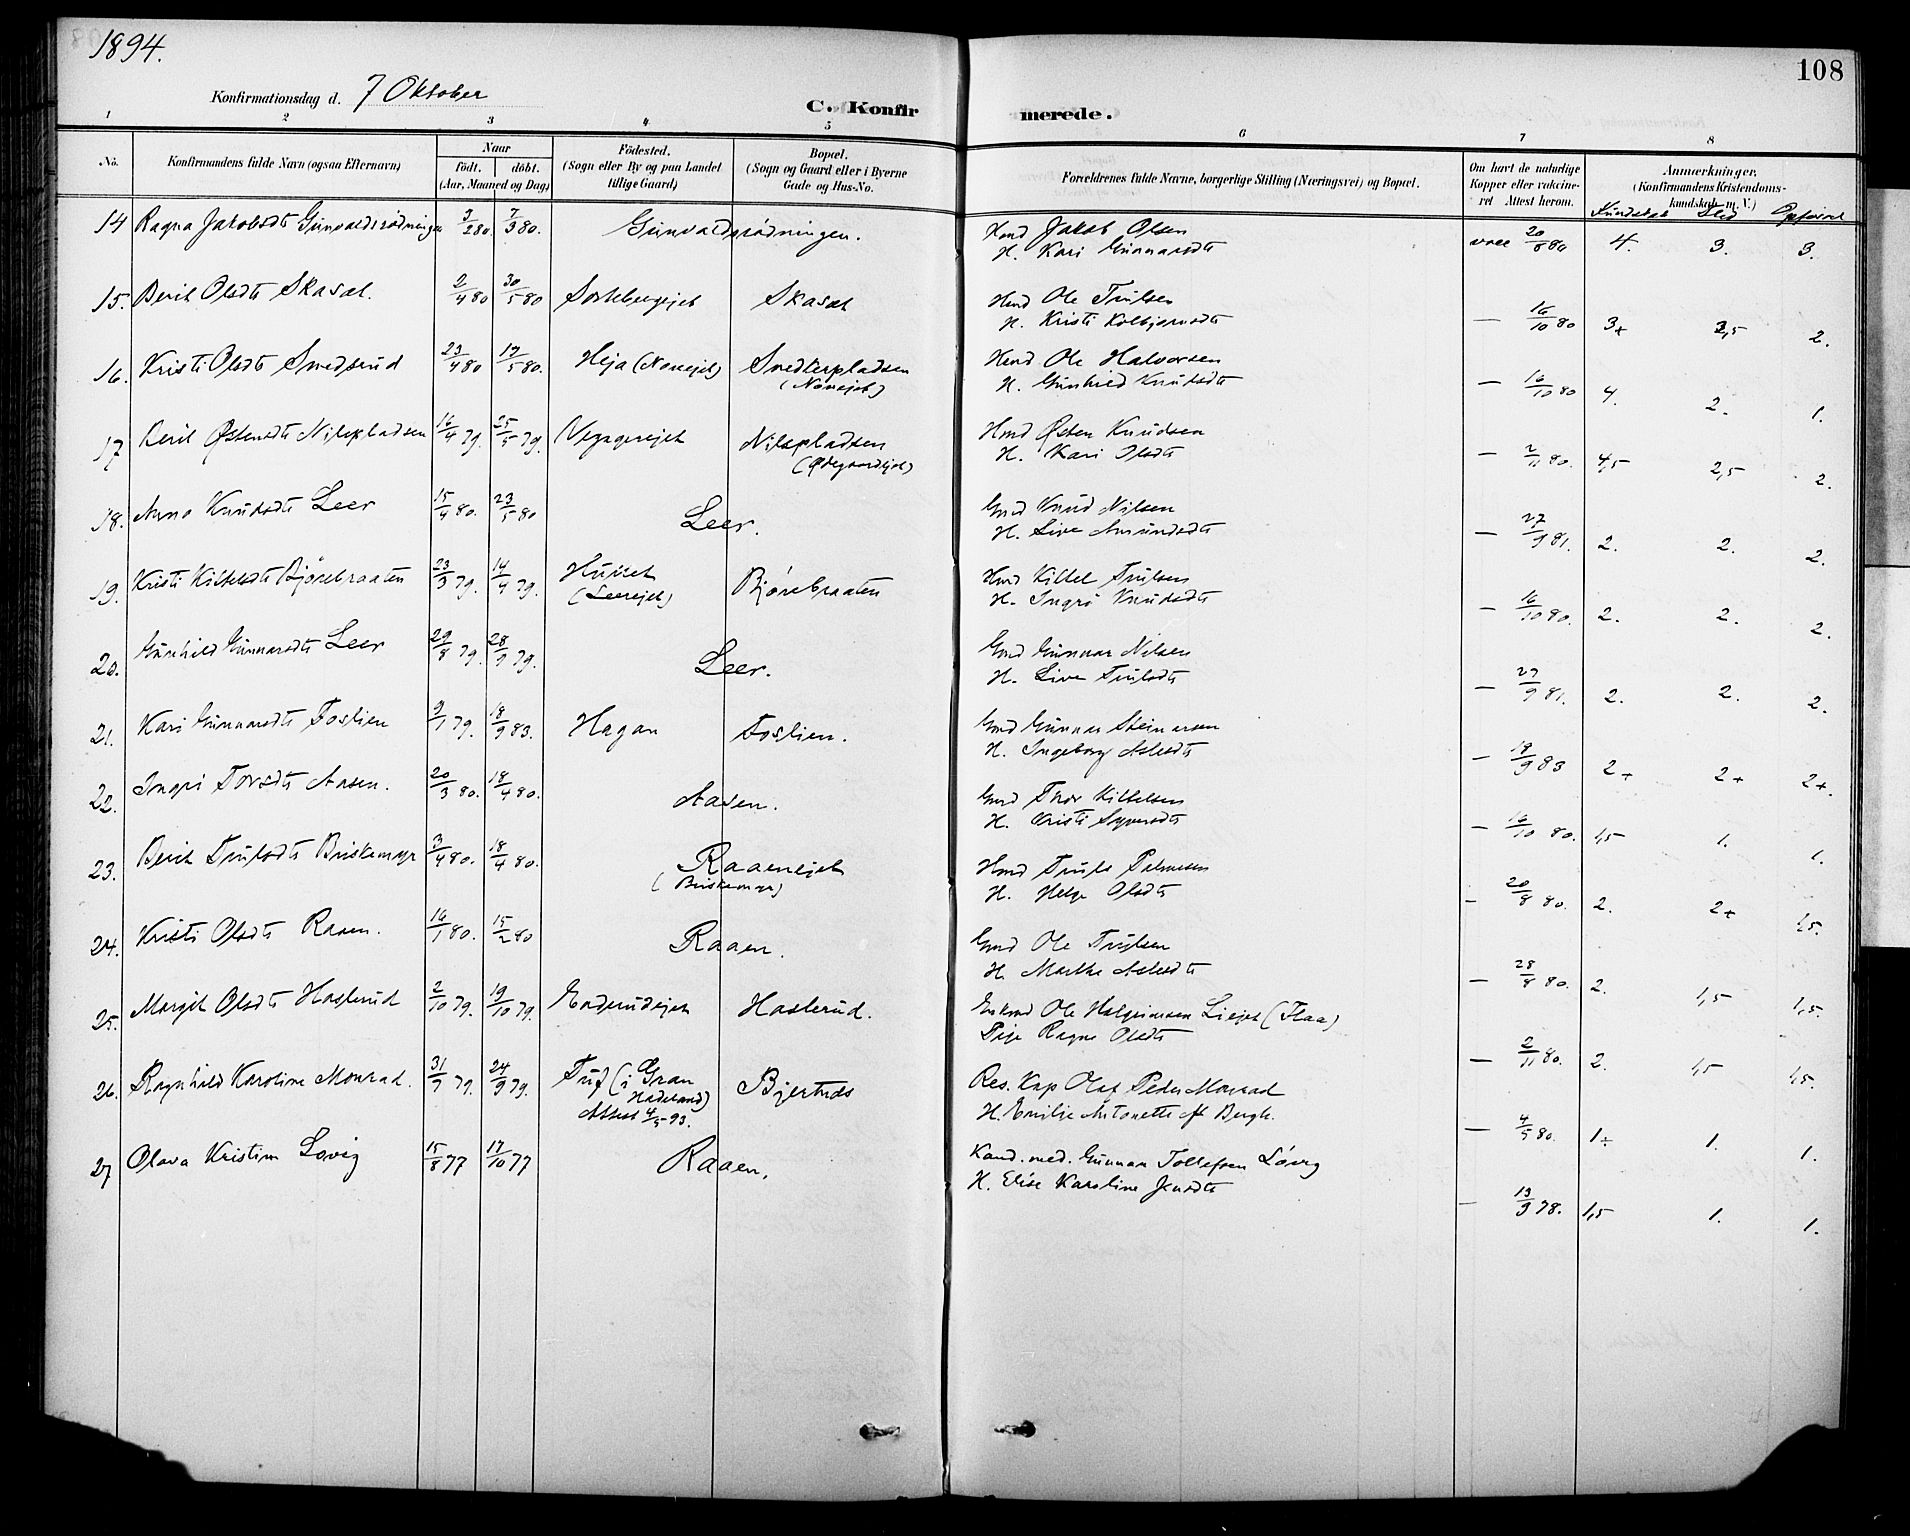 1894.
108
Konfirmationsdag d. 7 Oktober
C. Konfirmerede.
1 2 3 4 5 6 7 8
No. Konfirmandens fulde Navn (ogsaa Efternavn) Naar født. døbt. (Aar, Maaned og Dag) Fødested. (Sogn eller By og paa Landet tillige Gaard) Bopæl. (Sogn og Gaard eller i Byerne Gade og Hus-No. Forældrenes fulde Navne, borgerlige Stilling (Næringsvei) og Bopæl. Om havt de naturlige Kopper eller vakcineret Attest herom. Anmærkninger. (Konfirmandens Kristendomskundskab m. V.)
Kundskab Flid Opførsel
14 Ragna Jakobsdt Gunvaldsrødningen 3/2 80. 7/3 80. Gunvaldsrødningen. Hmd Jakob Olsen vacc 20/8 80 4. 3. 3.
H. Kari Gunnarsdt
15. Berit Olsdt Skasat. 2/4 80 30/5 80 Sortebergejet Skasat Hmd Ole Trulsen — 16/10 80 3+ 2,5 2.
H. Kristi Kolbjørnsdt
16. Kristi Olsdt Smedsrud 23/4 80 17/5 80. Heja (Noreejet) Smedterpladsen Hmd Ole Halvorsen — 16/10 80 4. 2. 1.
(Noreejet) H. Gunhild Knudsdt
17 Berit Østensdt Nilspladsen 16/4 79. 25/5 79. Nilspladsen Hmd Østen Knudsen — 2/11 80. 4,5 2,5 2.
(Ødegaardsejet) H. Kari Olsdt
18. Anne Knudsdt Leer 15/4 80. 23/5 80 Leer. Gmd Knud Nilsen — 27/9 81. 2. 2. 2.
H. Live Amundsdt
19. Kristi Kittelsdt Bjørebraaten 23/3 79. 14/4 79. Huset Bjørebraaten Hmd Kittel Trulsen — 16/10 80. 2. 2. 2.
(Leerejet) H. Ingri Knudsdt
20. Gunhild Gunnarsdt Leer 29/8 79. 28/9 79. Leer. Gmd Gunnar Nilsen — 27/9 81. 2. 2. 2.
H. Live Trulsdt
21. Kari Gunnarsdt Foslien 9/1 79. 18/9 83. Hagan Foslien. Gmd Gunnar Steinarsen — 18/9 83 2+ 2+ 2+.
H. Ingeborg Aslesdt
22. Ingri Torsdt Aasen. 20/3 80. 18/4 80. Aasen. Gmd Thor Kittelsen — 16/10 80. 1,5 1. 1.
H. Kristi Syversdt
23. Berit Trulsdt Briskemyr 3/4 80. 18/4 80. Raaenejet Hmd Truls — 20/8 80. 2. 2+ 1,5.
(Briskemyr) H. Helge Olsdt
24. Kristi Olsdt Raaen. 16/1 80. 15/2 80 Raaen. Gmd Ole Trulsen — 28/8 80. 2. 1,5 1,5.
H. Marthe Aslesdt
25. Margit Olsdt Haslerud 2/10 79. 19/10 79. Haslerud. Ole Halgrimsen Liejet (Flaa) — 2/11 80. 2. 1,5 1,5.
Pige Ragne Olsdt
26. Ragnhild Karoline Monrad. 31/7 79. 24/9 79. Tuf (i Gran Bjertnes Res. Kap Olaf Peder Monrad — 4/5 80. 1÷ 1. 1.
Hadeland)
Attest 4/5-93. H. Emilie Antonette f Bergh.
27 Olava Kristine Løvig 15/8 77 17/10 77 Raaen. Kand. med. Gunnar Tollefsen Løvig — 13/9 78. 1,5 1. 1.
H. Elise Karoline Jensdt